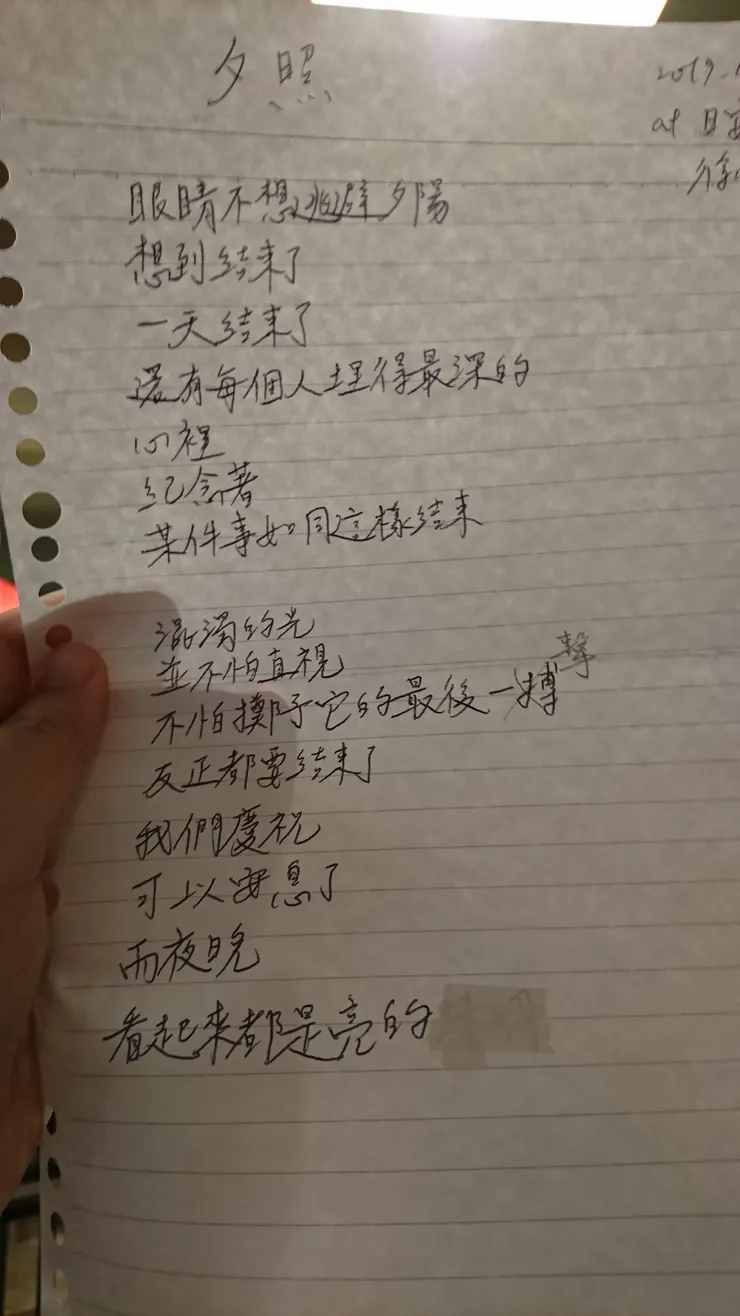 夕照
2019.1
at 日
徐
眼睛不想逃避夕陽
想到結束了
一天結束了
還有每個人埋得最深的
心裡
紀念著
某件事如同這樣結束
混濁的光
並不怕直視
不怕擲予它的最後一搏
擊
反正都要結束了
我們慶祝
可以安息了
而夜晚
看起來都是亮的